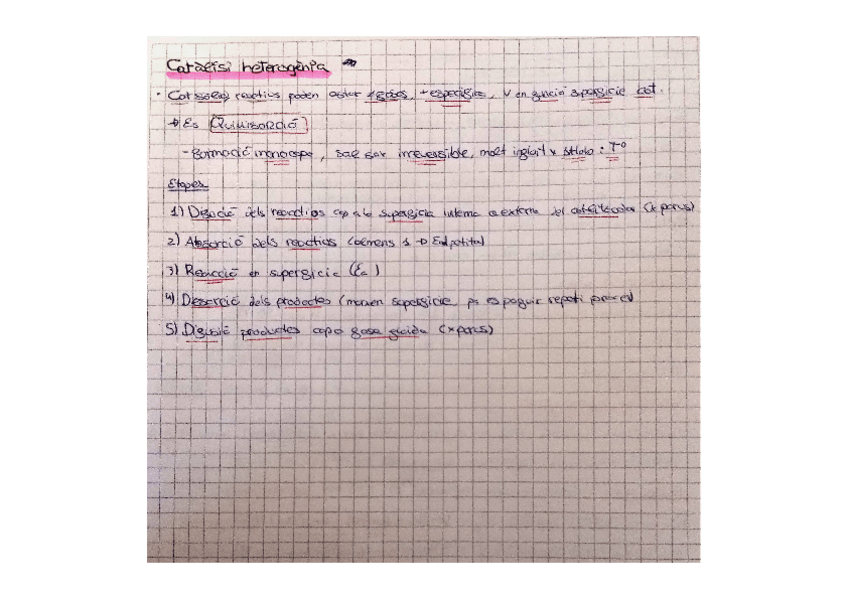 Catàlisi heterogènia
· Cat reactius poden estar, + específics, v en funció superfície cat.
→ Es Quimisorció
- Formació monocapa, sol ser irreversible, molt x : Tº
Etapes
1) Difusió dels reactius cap a la superfície interna o externa del catalitzador (x porus)
2) Absorció dels reactius (almenys 1 →
3) Reacció en superfície (Ea)
4) Desorció dels productes ( superfície repetir procés
5) Difusió productes cap a fase fluida (x porus)